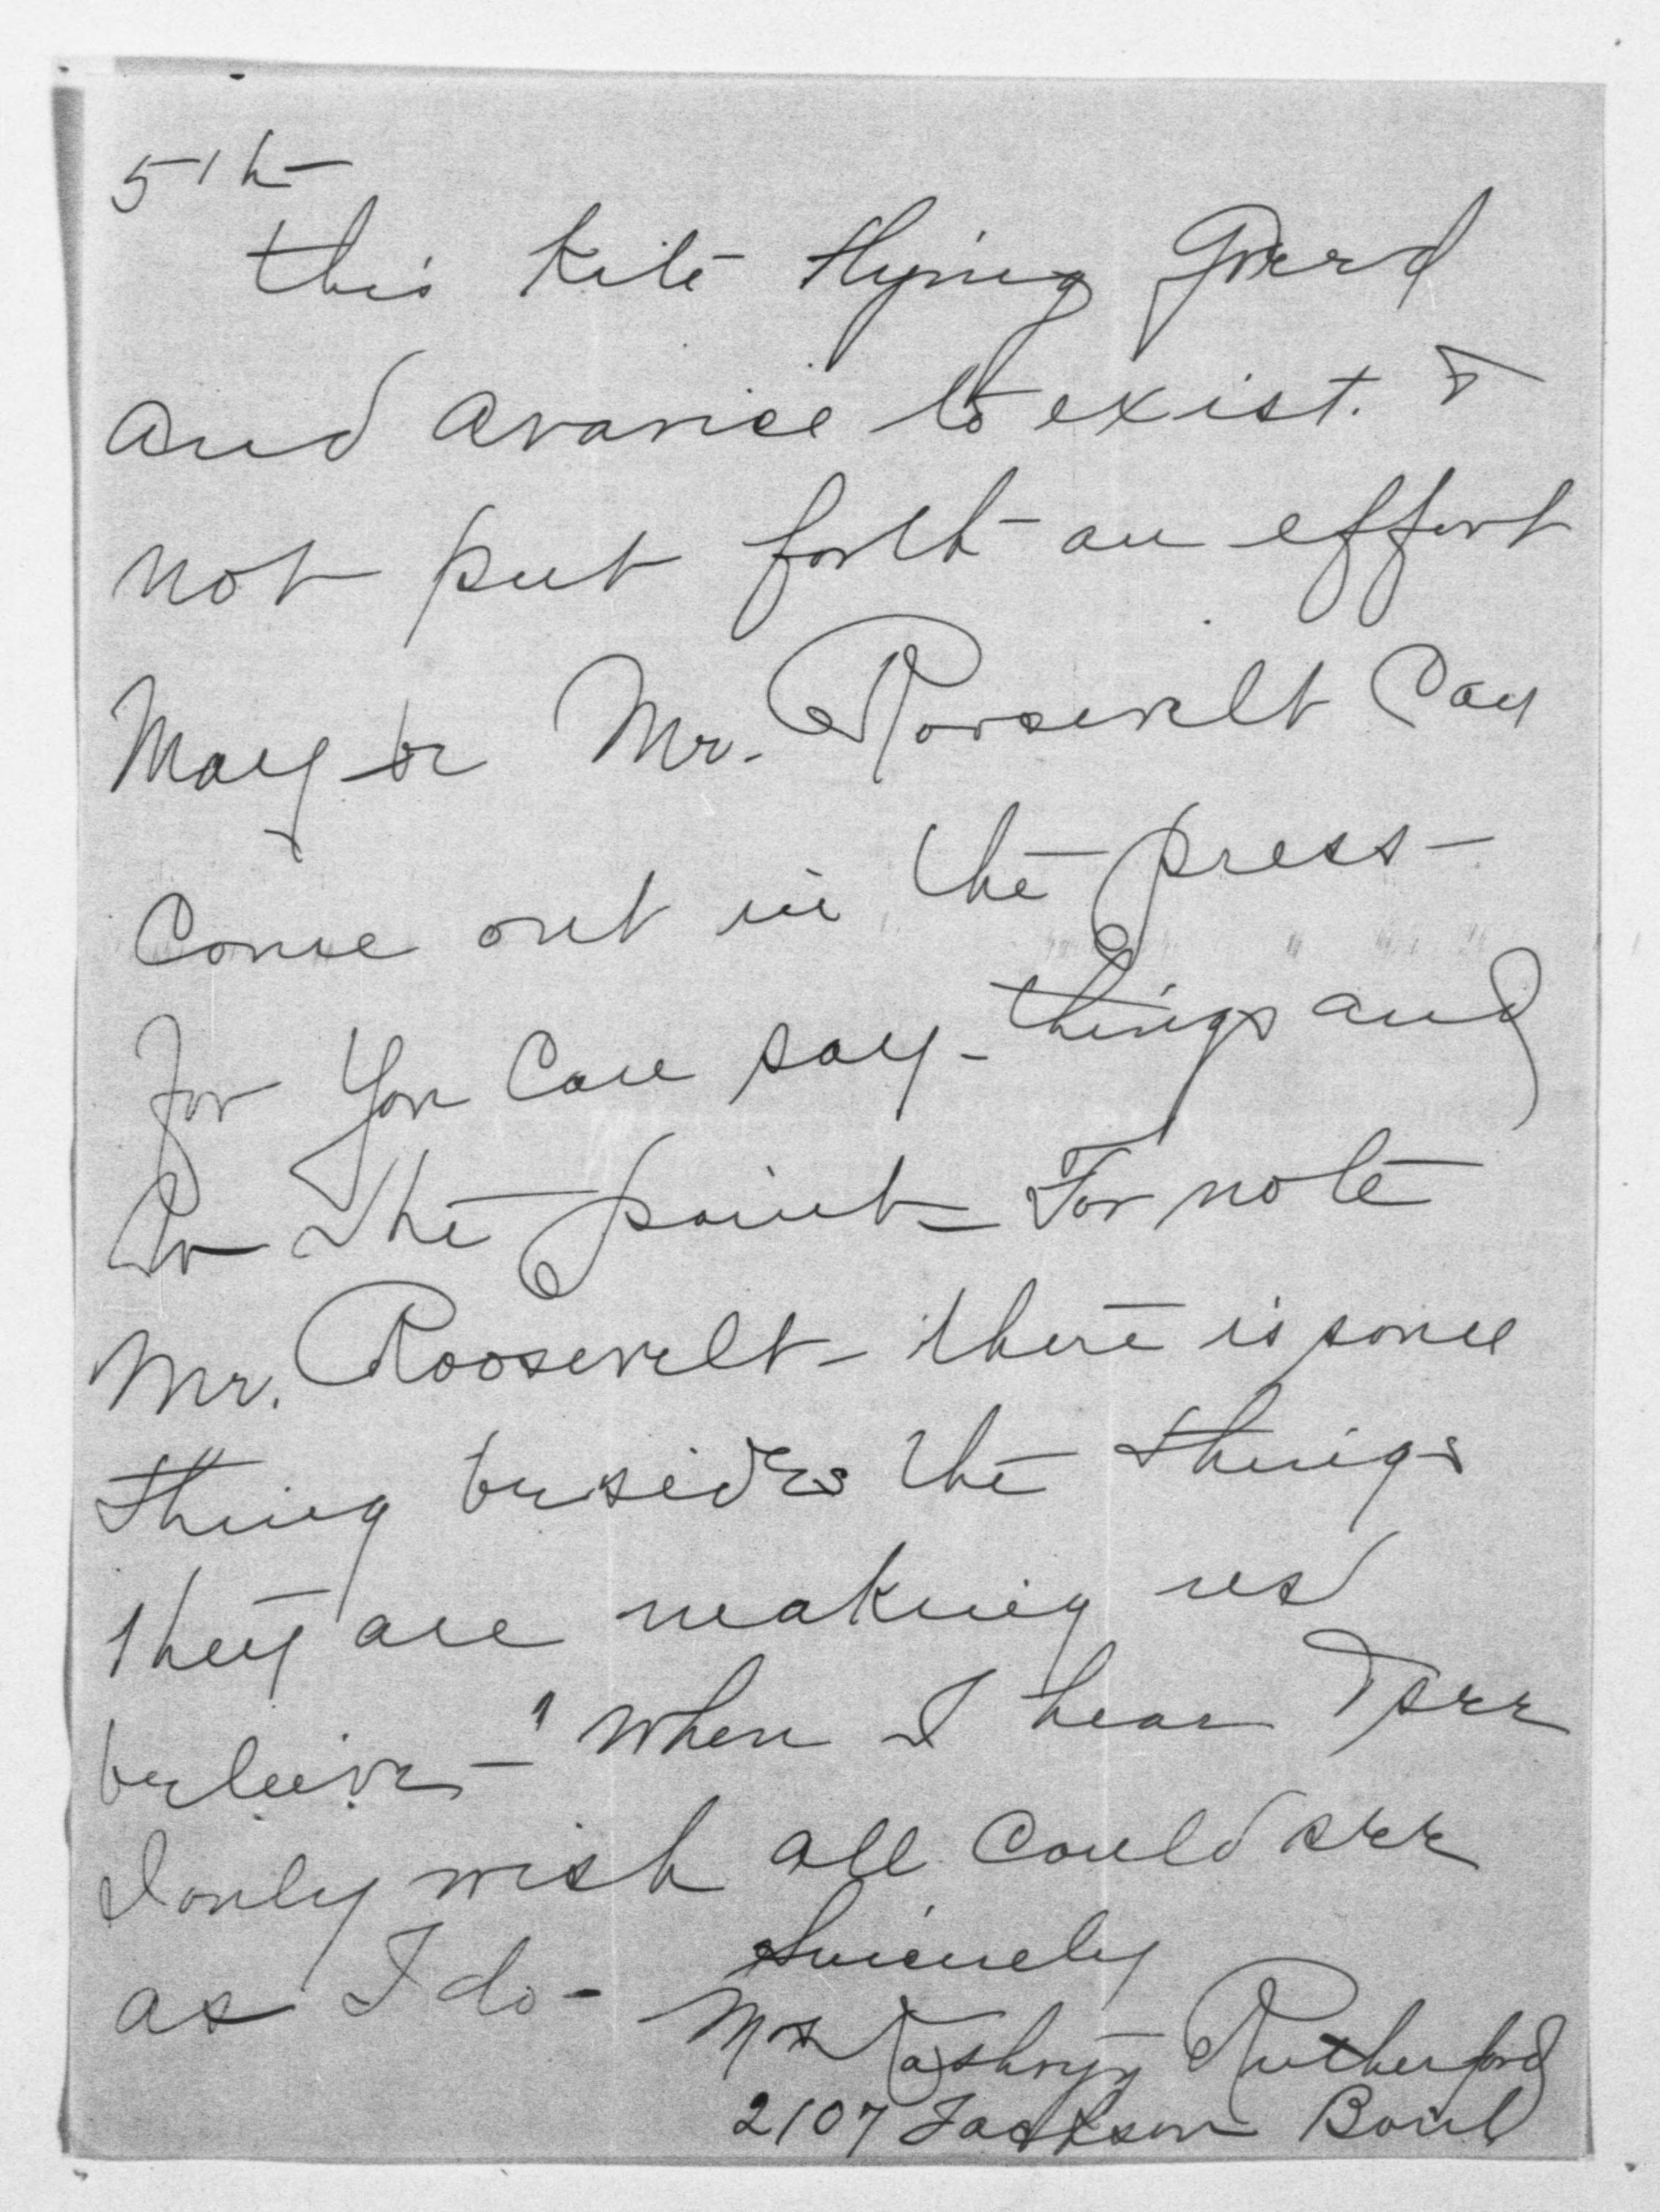 5th
this kite flying Greed
and avarice to exist. &
not put forth an effort
May be Mr. Roosevelt Can
Come out in the press -
for you Can say - things and
to the point - For note
Mr. Roosevelt - there is some
thing besides the things
they are making us
believe - " When I hear & see
I only wish all could see
as I do - Sincerely
Mrs Kathryn Rutherford
2107 Jackson Boul